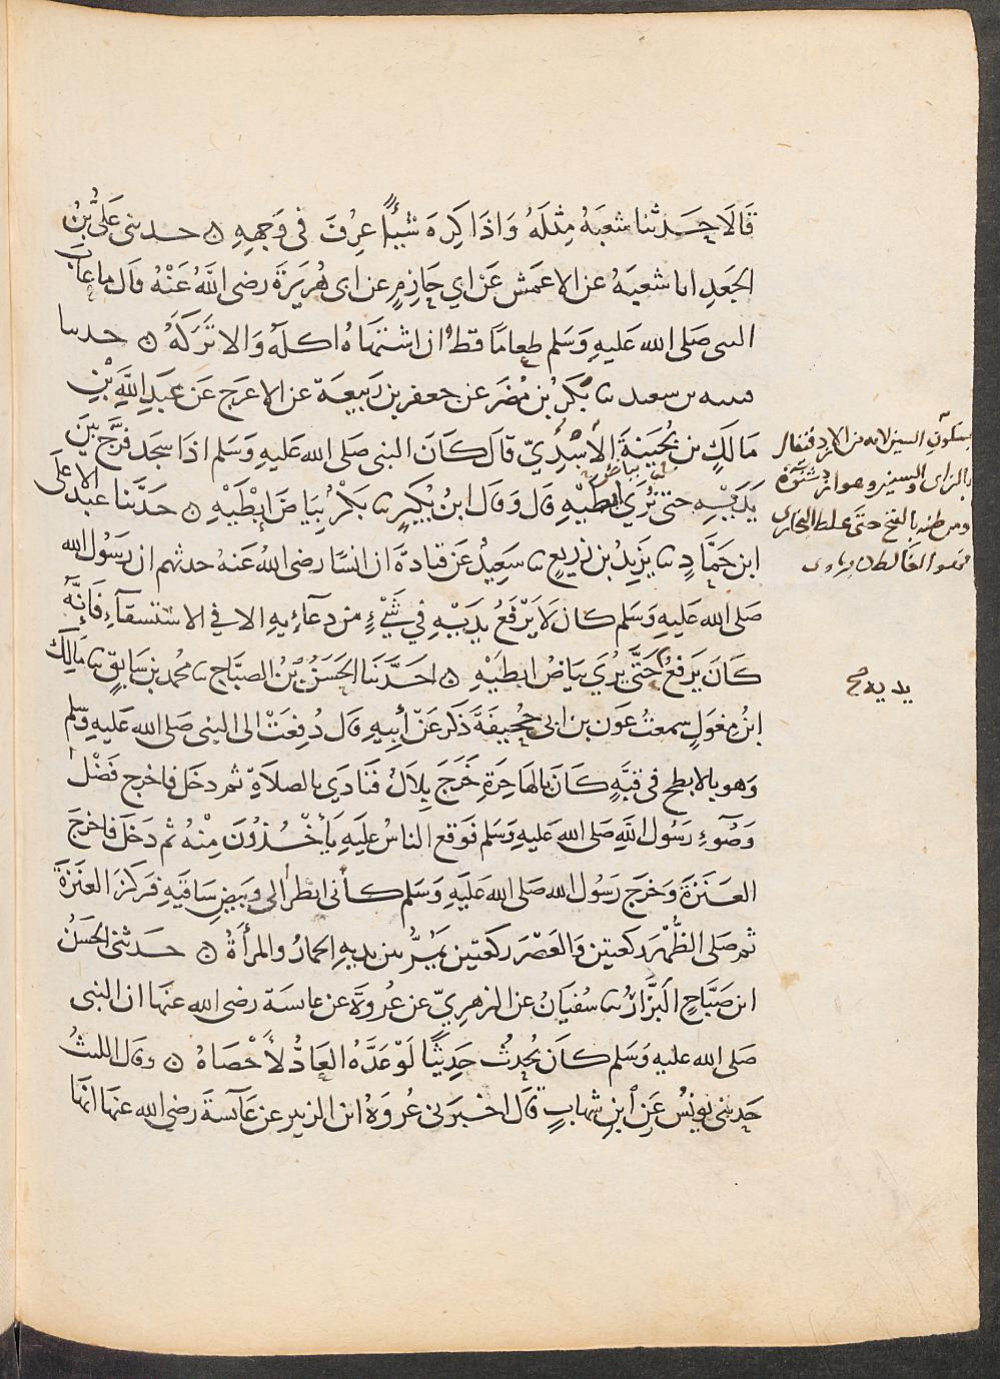 قَالَا حَدَّثنا شعبَهُ مِثلَهُ وَاذَا كَرِهَ شَيْأً عِرُفَ فى وَجهِهِ ه حدثنى عَلىُّ بْنُ
الجَعدِ انا شعبَهُ عن الاعمَش عَن ابي حَازِمٍ عن ابى هُرَيرَةَ رضى اللَّهُ عَنْهُ قال ما عابَ
النبى صَلى الله عَليهِ وَسَلم طعامًا قطُّ ان اشتهَاهُ اكلَهُ وَالا تَركَهُ ه حدثنا
قتيبه بن سعيد ثنا بَكرُ بْن مُضَر عَن جعفر بن رَبيعَة عن الاعرَج عَن عَبدِ اللَّهِ بْنِ
مَالِكٍ بن بُحَينَةَ الأسْدِيّ قالَ كَانَ النبى صَلى الله عَليهِ وَسَلم اذَا سجَد فرَّج بَينَ
يَدَيْهِ حتى نُرَي ابطَيْهِ قال وَقال ابنُ بُكَيرٍ ثنا بَكْرٌ بَيَاضَ اِبْطَيْهِ ه حَدَّثنا عَبد الاعلَى
ابن حَمَّادٍ ثنا يَزيدُ بن زُرَيعٍ ثنا سَعِيدٌ عَن قتادةَ ان انسًا رضى الله عَنهُ حدثهم ان رَسُول الله
صَلى الله عَليهِ وَسَلم كانَ لَا يَرْفَعُ يَدَيْهِ في شَيْءٍ من دعَآءِيهِ الا في الاستسقآءِ فَاِنَّهُ
كَانَ يَرفَعُ حَتَّى يُرَي بَيَاضُ ابطَيْهِ ه حَدَّثنَا الحَسَنُ بْنُ الصبَّاحِ ثنا محمد بن سَابِقٍ ثنا مَالِكُ
ابْنُ مِغوَلٍ سمعتُ عَون بن ابى جُحيفَةَ ذَكَرَ عَنْ أَبِيهِ قالَ دُفِعَتْ الى النبى صَلى الله عَليهِ وَسلم
وَهو بالابطحِ فى قبَّهٍ كَانَ بالهَاجرَةِ خَرَجَ بِلَالٌ فنَادَي بالصلَاةِ ثم دخَل فاخرج فَضْلَ
وَضُوءِ رَسُول اللَّهِ صَلى الله عَليهِ وَسَلم فوَقع الناسُ علَيهِ يَأخُذُونَ مِنْهُ ثم دَخَلَ فاخرَجَ
العَنَزَةَ وَخرَج رَسُول الله صَلى الله عَليهِ وَسَلم كأنى انظر الى وَبيضِ سَاقيَهِ فَركزَ العنَزةَ
ثم صَلى الظُّهْرَ ركعَتين وَالعَصْرَ ركعَتين يَمُرُّ بين يديهِ الحمارُ والمرأَةُ ه حَدثنى الحَسَنُ
ابن صَبَّاحٍ البَزَّارُ ثنا سُفيَانُ عن الزهرِيّ عن عُروَةَ عن عايشة رضى الله عنهَا ان النبى
صَلى الله عليه وَسَلم كانَ يُحدِّثُ حَدِيثًا لَوْ عَدَّهُ العَادُّ لأحْصَاهُ ه وقال الليثُ
حَدثنى يُونسُ عَن ابنِ شهابٍ قالَ اخبرَنى عُروَةُ ابن الزبير عن عَآيشةَ رضى الله عنهَا انهَا
بسكون السين لانه من الازد فتقال
بالزاى والسين وهو ازد شنوءَة
ومن ظنه بالفتح حتى غلط البخارى
فهو الغالط
بياض
يديه صح